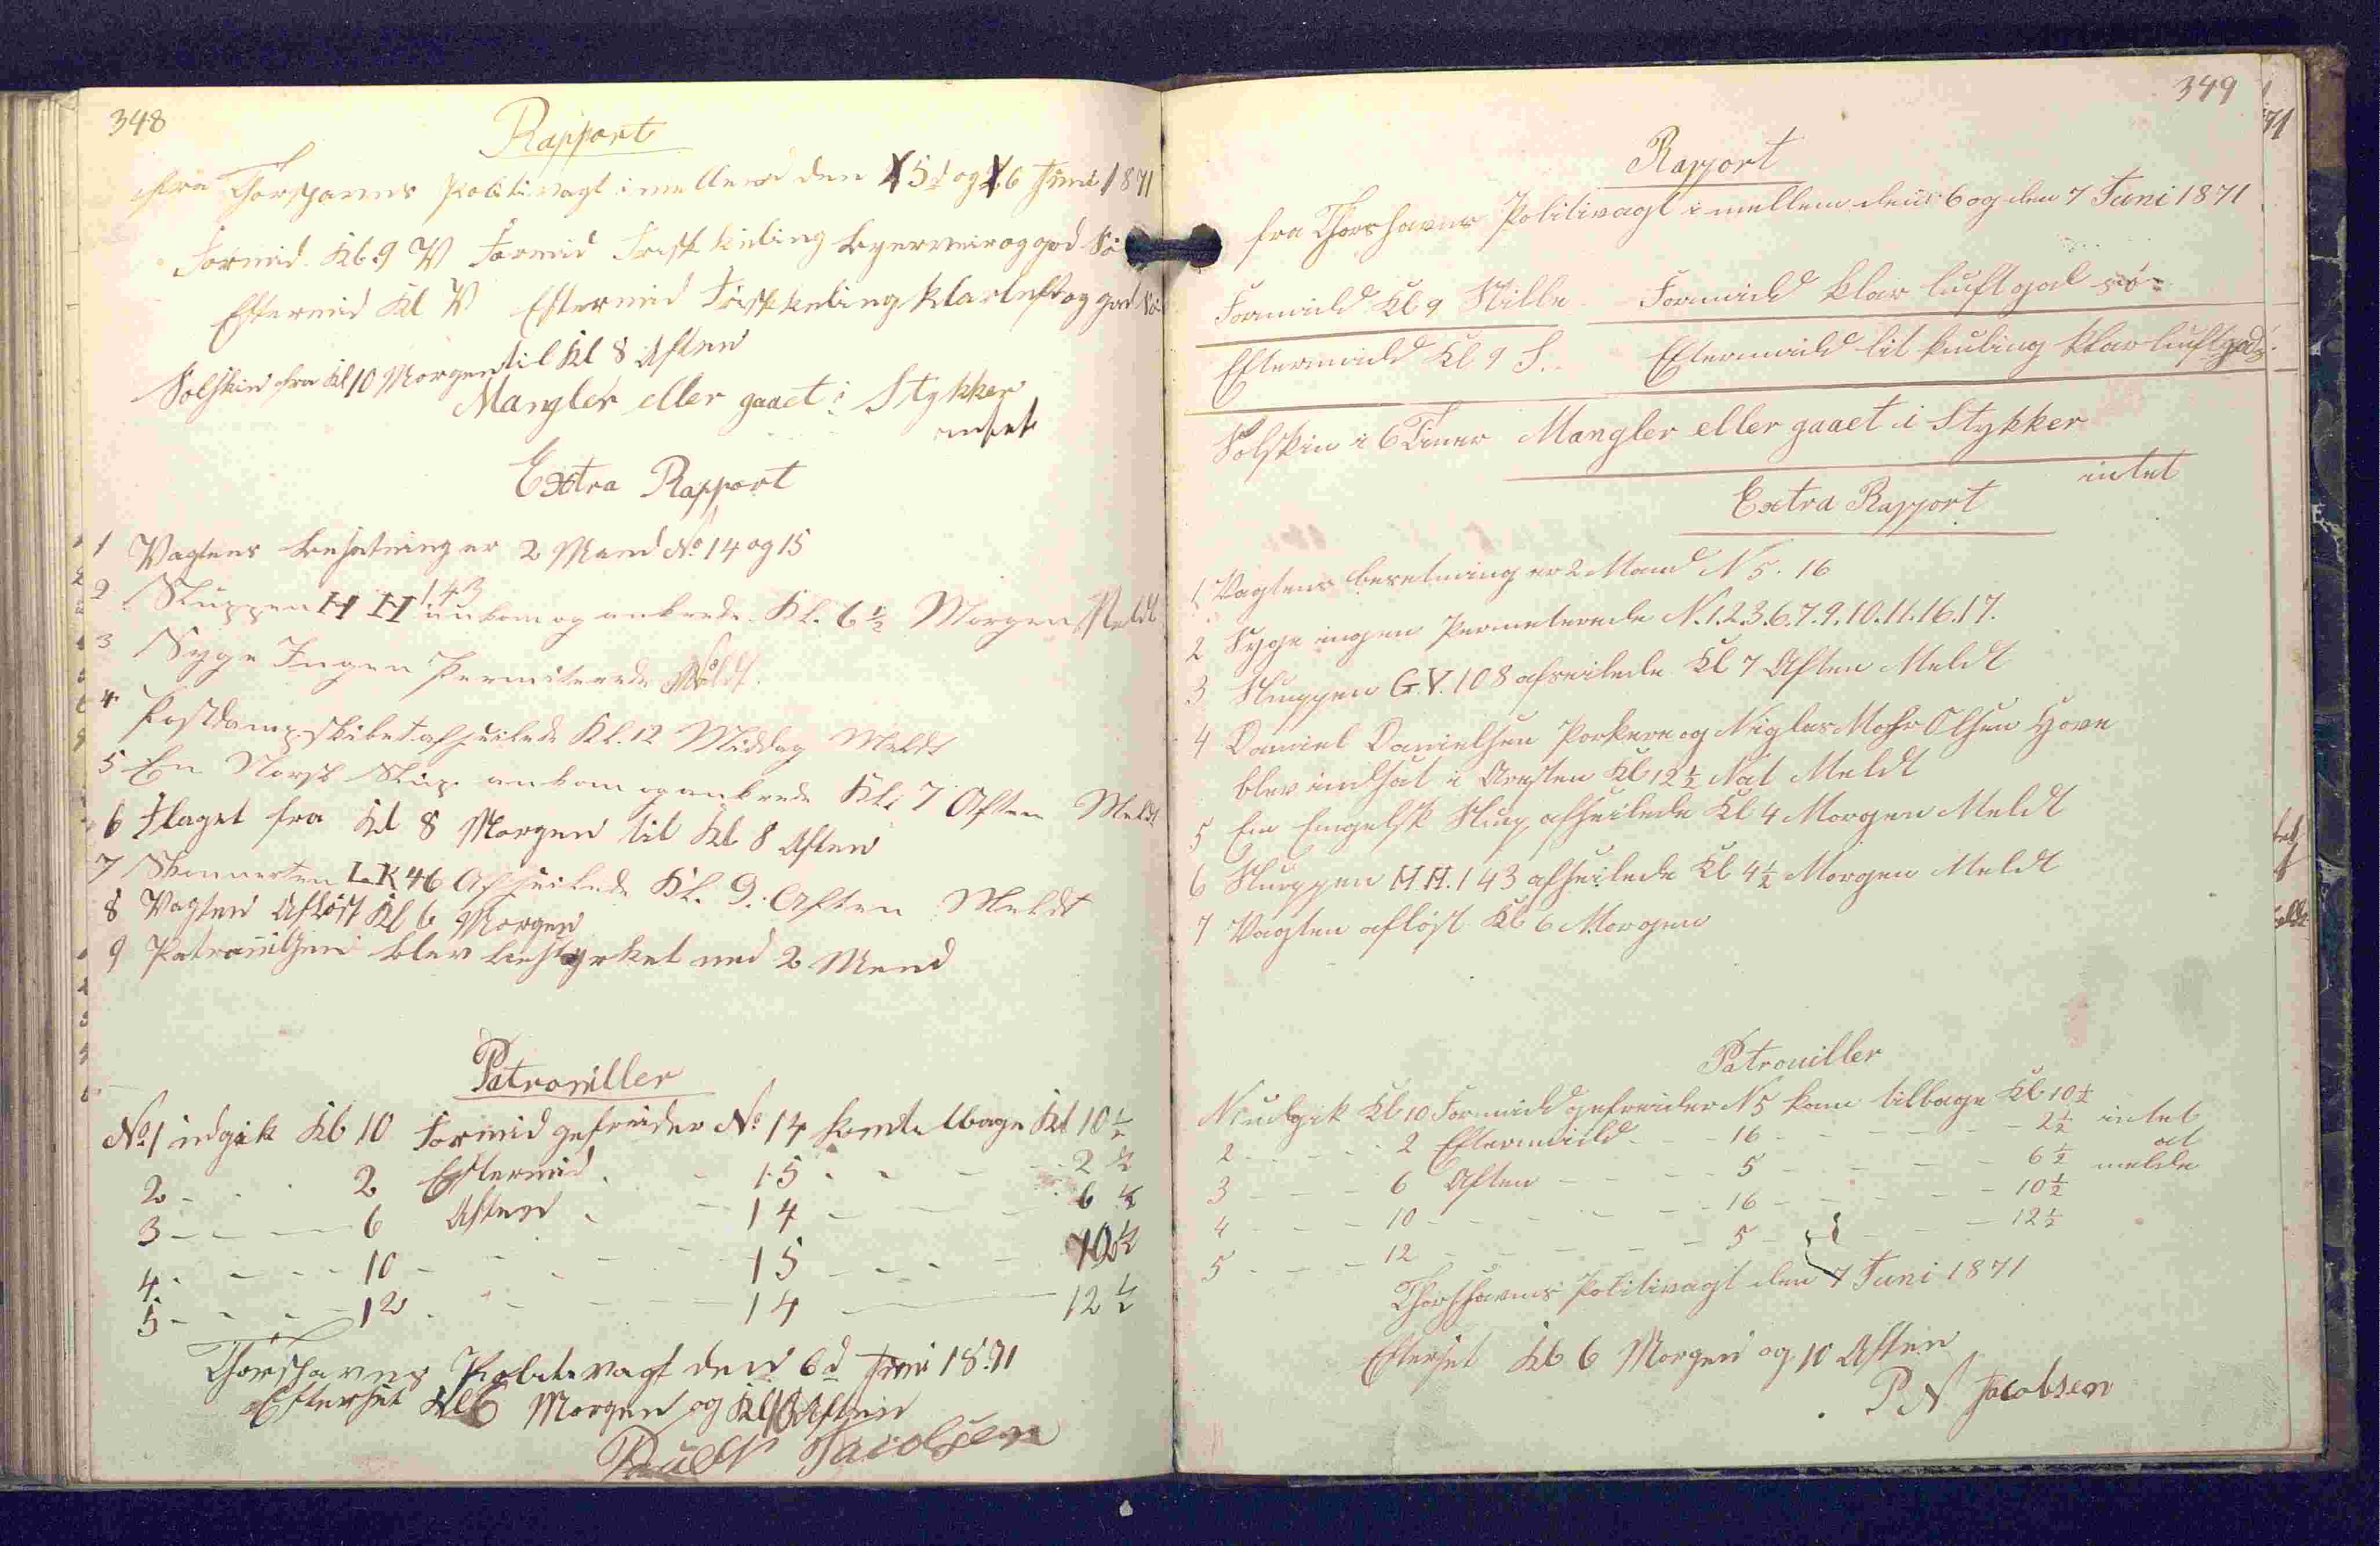 348
Rapport
fra Thorshavns Politivagt i mellem den 5d og 6 Juni 1871
Formid. Kl. 9 V Formid Frisk kuling og god Sø
Eftermid Kl V Eftermid Frisk kuling klarluft og god Sø
Solskin fra Kl 10 Morgen til Kl 8 Aften
Mangler eller gaaet i Stykker
intet
Extra Rapport
1 Vagtens besetning er 2 Mand No 14 og 15
2 Sluppen H H 143 ankom og ankrede Kl. 6 ½ Morgen Meldt
3 Syge Ingen Permiterede Meldt.
4 Postdampskibet afseilede Kl. 12 Middag Meldt
5 En Norsk Slup ankom og ankrede Kl. 7 Aften Meldt
6 Flaget fra Kl 8 Morgen til Kl 8 Aften
7 Skonnerten L.K 46 Afseilede Kl. 9. Aften Meldt
8 Vagten Afløst Kl 6 Morgen
9 Patrouillen blev bestyrket med 2 Mend
Patrouiller
No 1 udgik Kl 10 Formid gefreider No 14 kom tilbage Kl 10 ½
2 - - - 2 Eftermid. - 15 - - - 2 ½
3 - - - 6 Aften - 14 - - - 6 ½
4. - - - 10 - - - 15 - - - 10 ½
5 - - - 12 - - - 14 - 12 ½
Thorshavns Politivagt den 6d Juni 1871
Efterset Kl 6 Morgen og Kl 10 Aften
Poul N Jacobsen
349
Rapport
fra Thorshavns Politivagt i mellem den 6 og den 7 Juni 1871
Formidd Kl 9 Stille Formidd klar luft god sø
Eftermidd Kl 9 S. Eftermidd lit kuling klar luft god
Solskin i 6 Timer Mangler eller gaaet i Stykker
intet
Extra Rapport
1 Vagtens besetning er 2 Mand N 5. 16
2 Syge ingen Permeterede N. 1. 2. 3. 6. 7. 9. 10. 11. 16. 17.
3 Sluppen G.V. 108 afseilede Kl 7 Aften Meldt
4 Daniel Danielsen Porkere og Niglas Mohr Olsen Hove
blev indsat i Aresten Kl 12 ½ Nat Meldt
5 En Engelsk Slup afseilede Kl 4 Morgen Meldt
6 Sluppen H.H. 143 afseilede Kl 4 ½ Morgen Meldt
7 Vagten afløst Kl 6 Morgen
Patrouiller
N 1 udgik Kl 10 Formidd gefreider N 5 kom tilbage Kl 10 ½
2 - - - 2 Eftermidd - - 16 - - - 2 ½ intet
3 - - - 6 Aften - - 5 - - - 6 ½ at
4 - - - 10 - - - 16 - - - 10 ½ melde
5 - - - 12 - - - 5 - - - 12 ½
Thorshavns Politivagt den 7 Juni 1871
Efterset Kl 6 Morgen og 10 Aften
P N Jacobsen